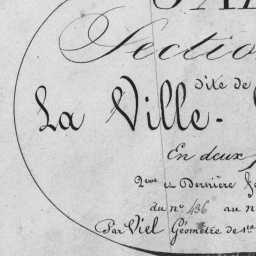 Sectio
dité de
La Ville-
En deux
2eme et Dernière
du no 436 au n
Par Viel Géomètre de 1re